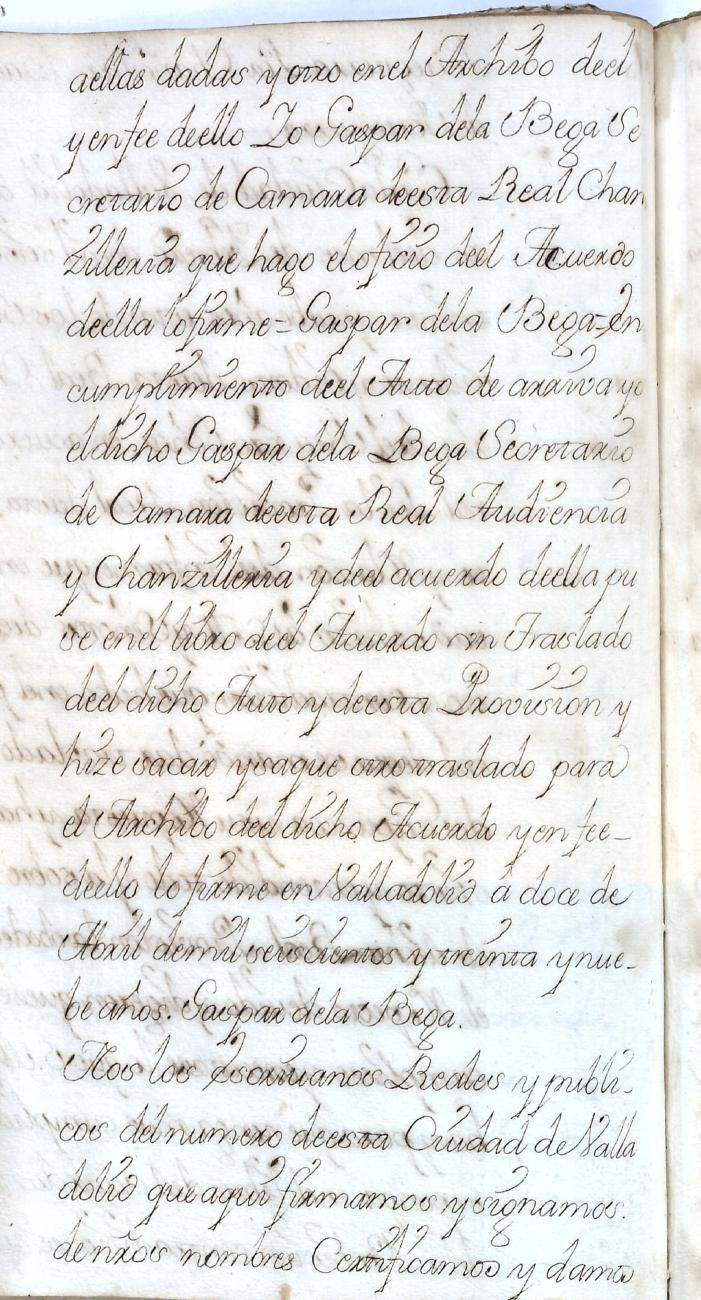 aellas dadas y otro en el Archibo deel
y en fee deello Yo Gaspar dela Bega Se
cretario de Camara deesta Real Chan
zilleria que hago el oficio deel Acuerdo
deella lo firme = Gaspar dela Bega = En
cumplimiento deel Auto de arriva yo
el dicho Gaspar dela Bega Secretario
de Camara deesta Real Audiencia
y Chanzilleria y deel acuerdo deella pu
se en el libro deel Acuerdo un Traslado
deel dicho Auto y deesta Provision y
hize sacar y saque otro traslado para
el Archibo deel dicho Acuerdo y en fee-
deello lo firme en Valladolid â doce de
Abril de mil seiscientos y treinta y nue-
be años. Gaspar dela Bega.
Nos los escriuanos Reales y publi-
cos del numero deesta Ciudad de Valla
dolid que aqui firmamos y signamos.
de nrõs nombres Certificamos y damos